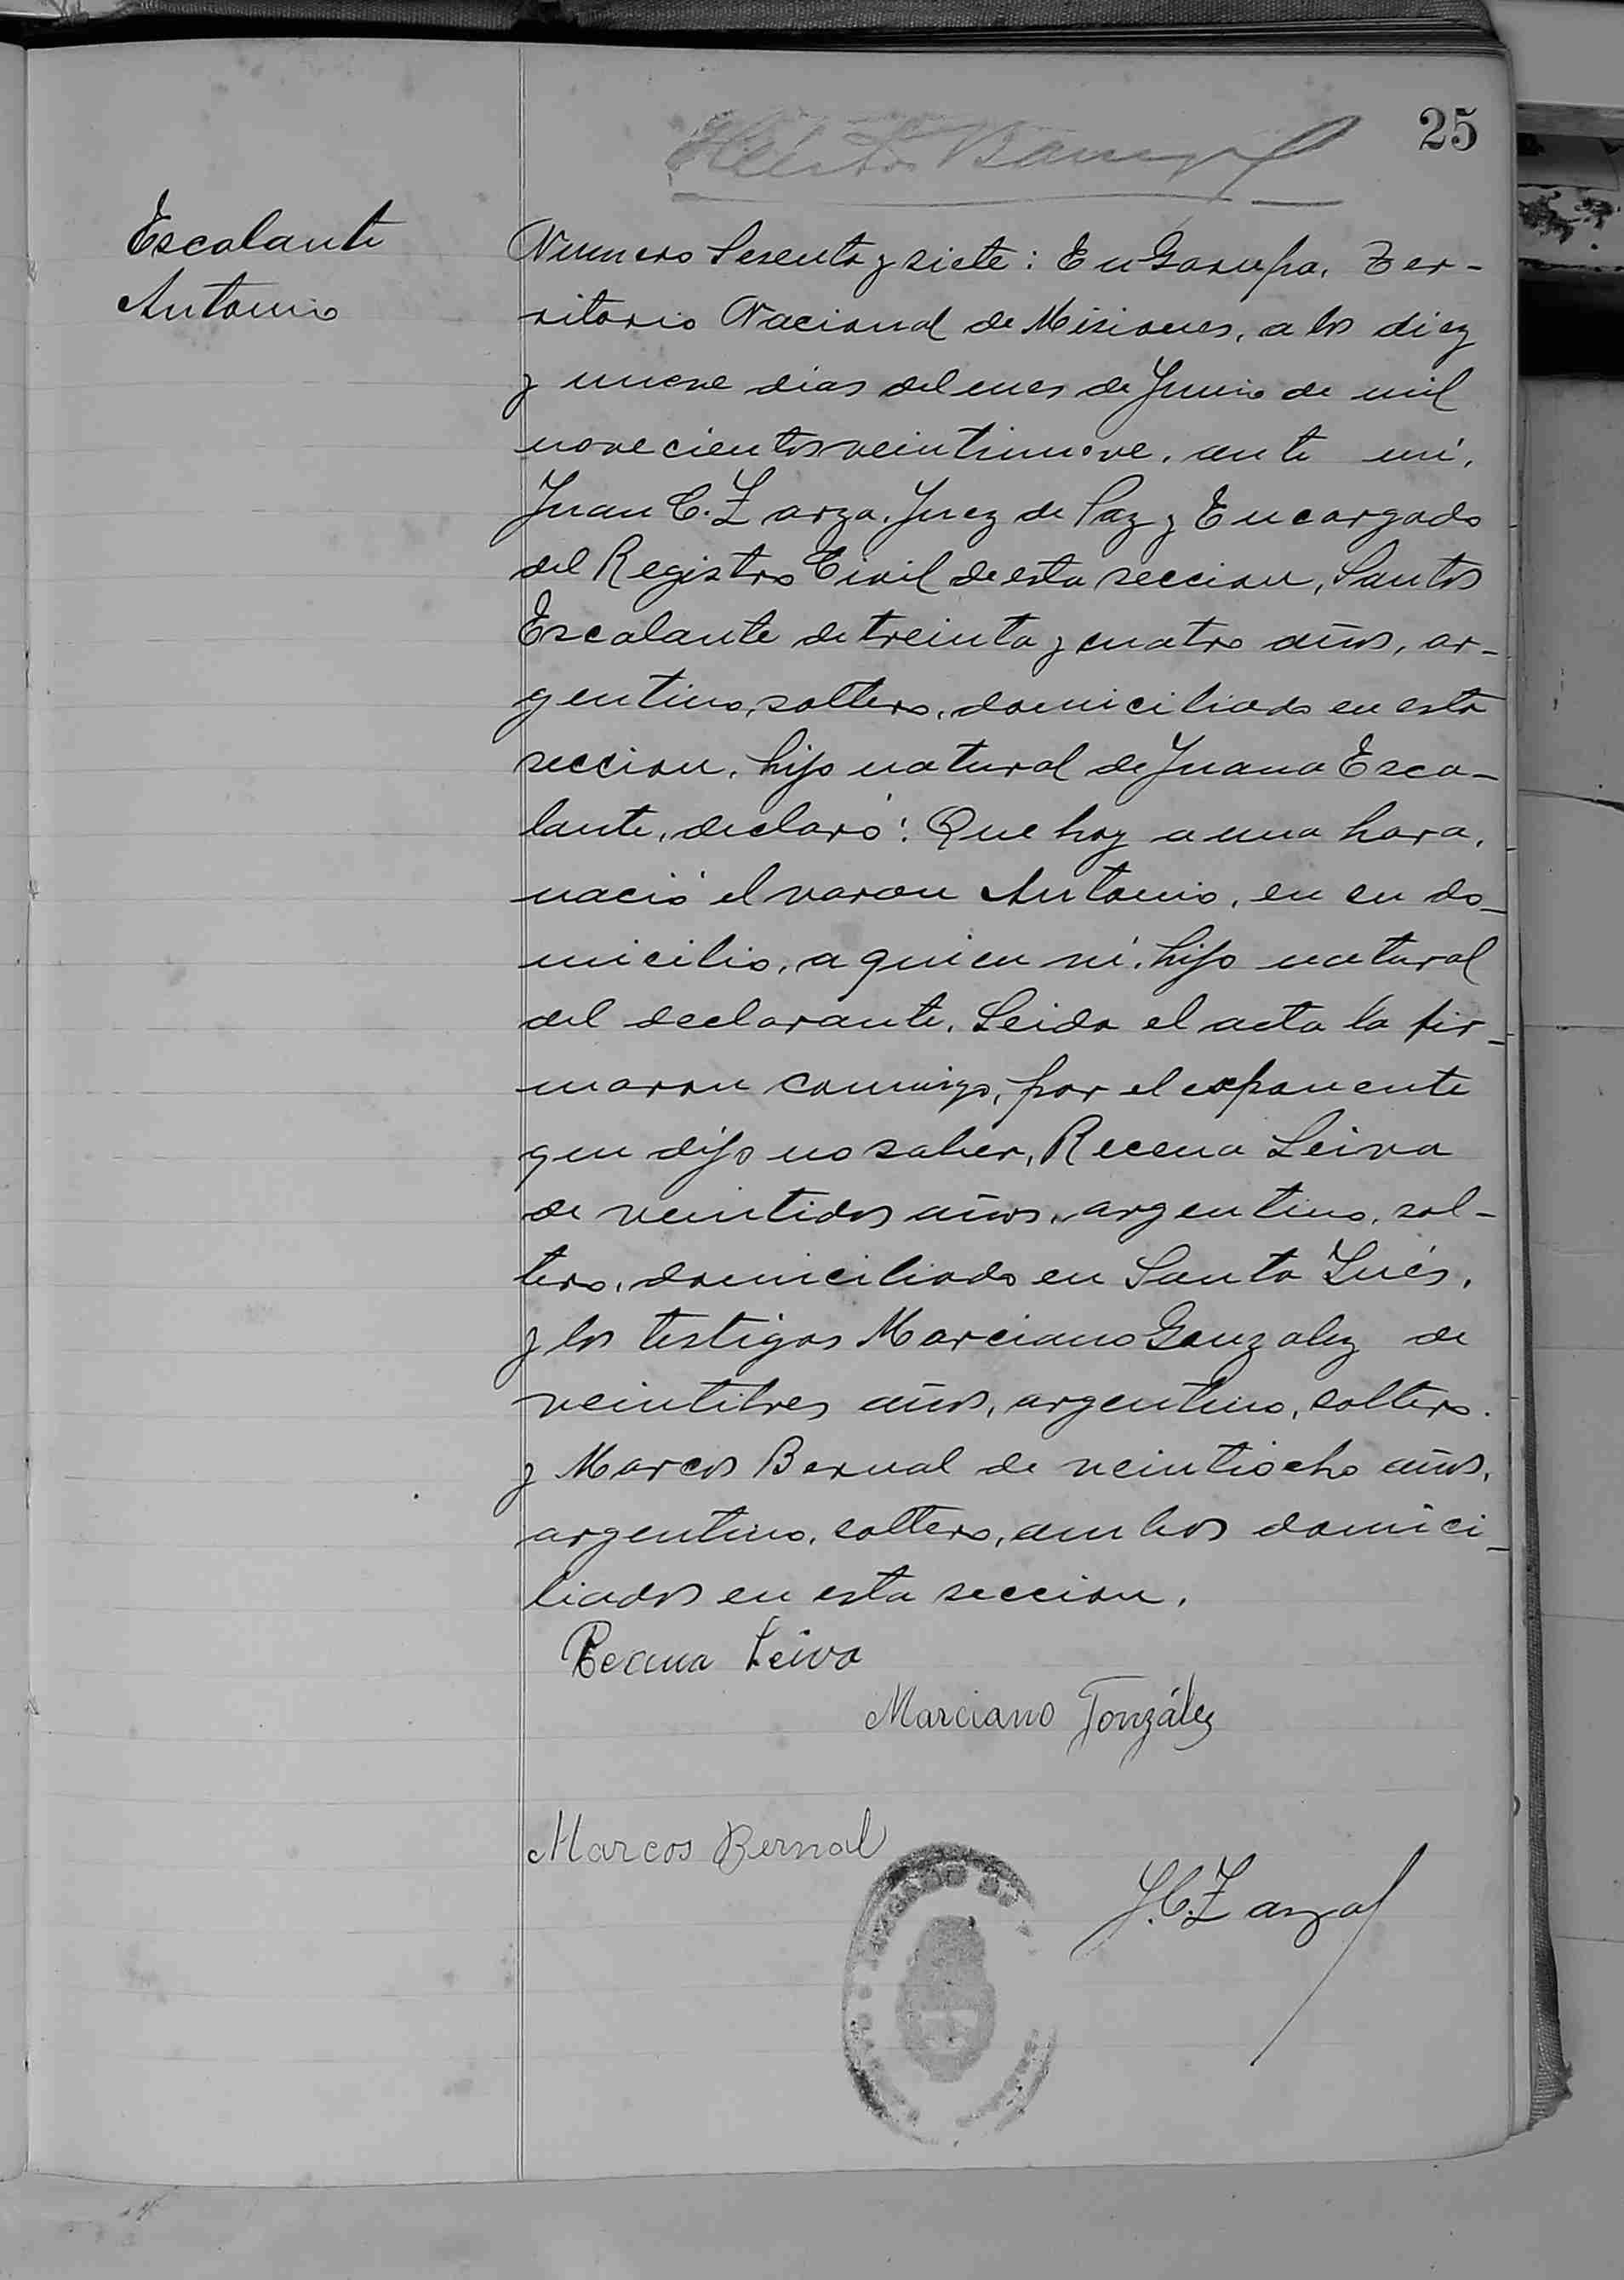 25
Escalante
Antonio
Numero Sesenta y siete: En Garupa, Ter-
ritorio Nacional de Misiones, a los diez
y nueve dias del mes de Junio de mil
novecientos veintinueve, ante mí,
Juan C. Zarza, Juez de Paz y Encargado
del Registro Civil de esta seccion, Santos
Escalante de treinta y cuatro años, ar-
gentino, soltero, domiciliado en esta
seccion, hijo natural de Juana Esca-
lante, declaró: Que hoy a una hora,
nació el varon Antonio, en su do-
micilio, a quien ví, hijo natural
del declarante. Leida el acta la fir-
maron conmigo, por el exponente
que dijo no saber, Recena Leiva
de veintidos años, argentino, sol-
tero, domiciliado en Santa Inés,
y los testigos Marciano Gonzalez de
veintitres años, argentino, soltero.
y Marcos Bernal de veintiocho años,
argentino, soltero, ambos domici-
liados en esta seccion.
Leiva
Marciano González
Marcos Bernal
J. C. Zarza